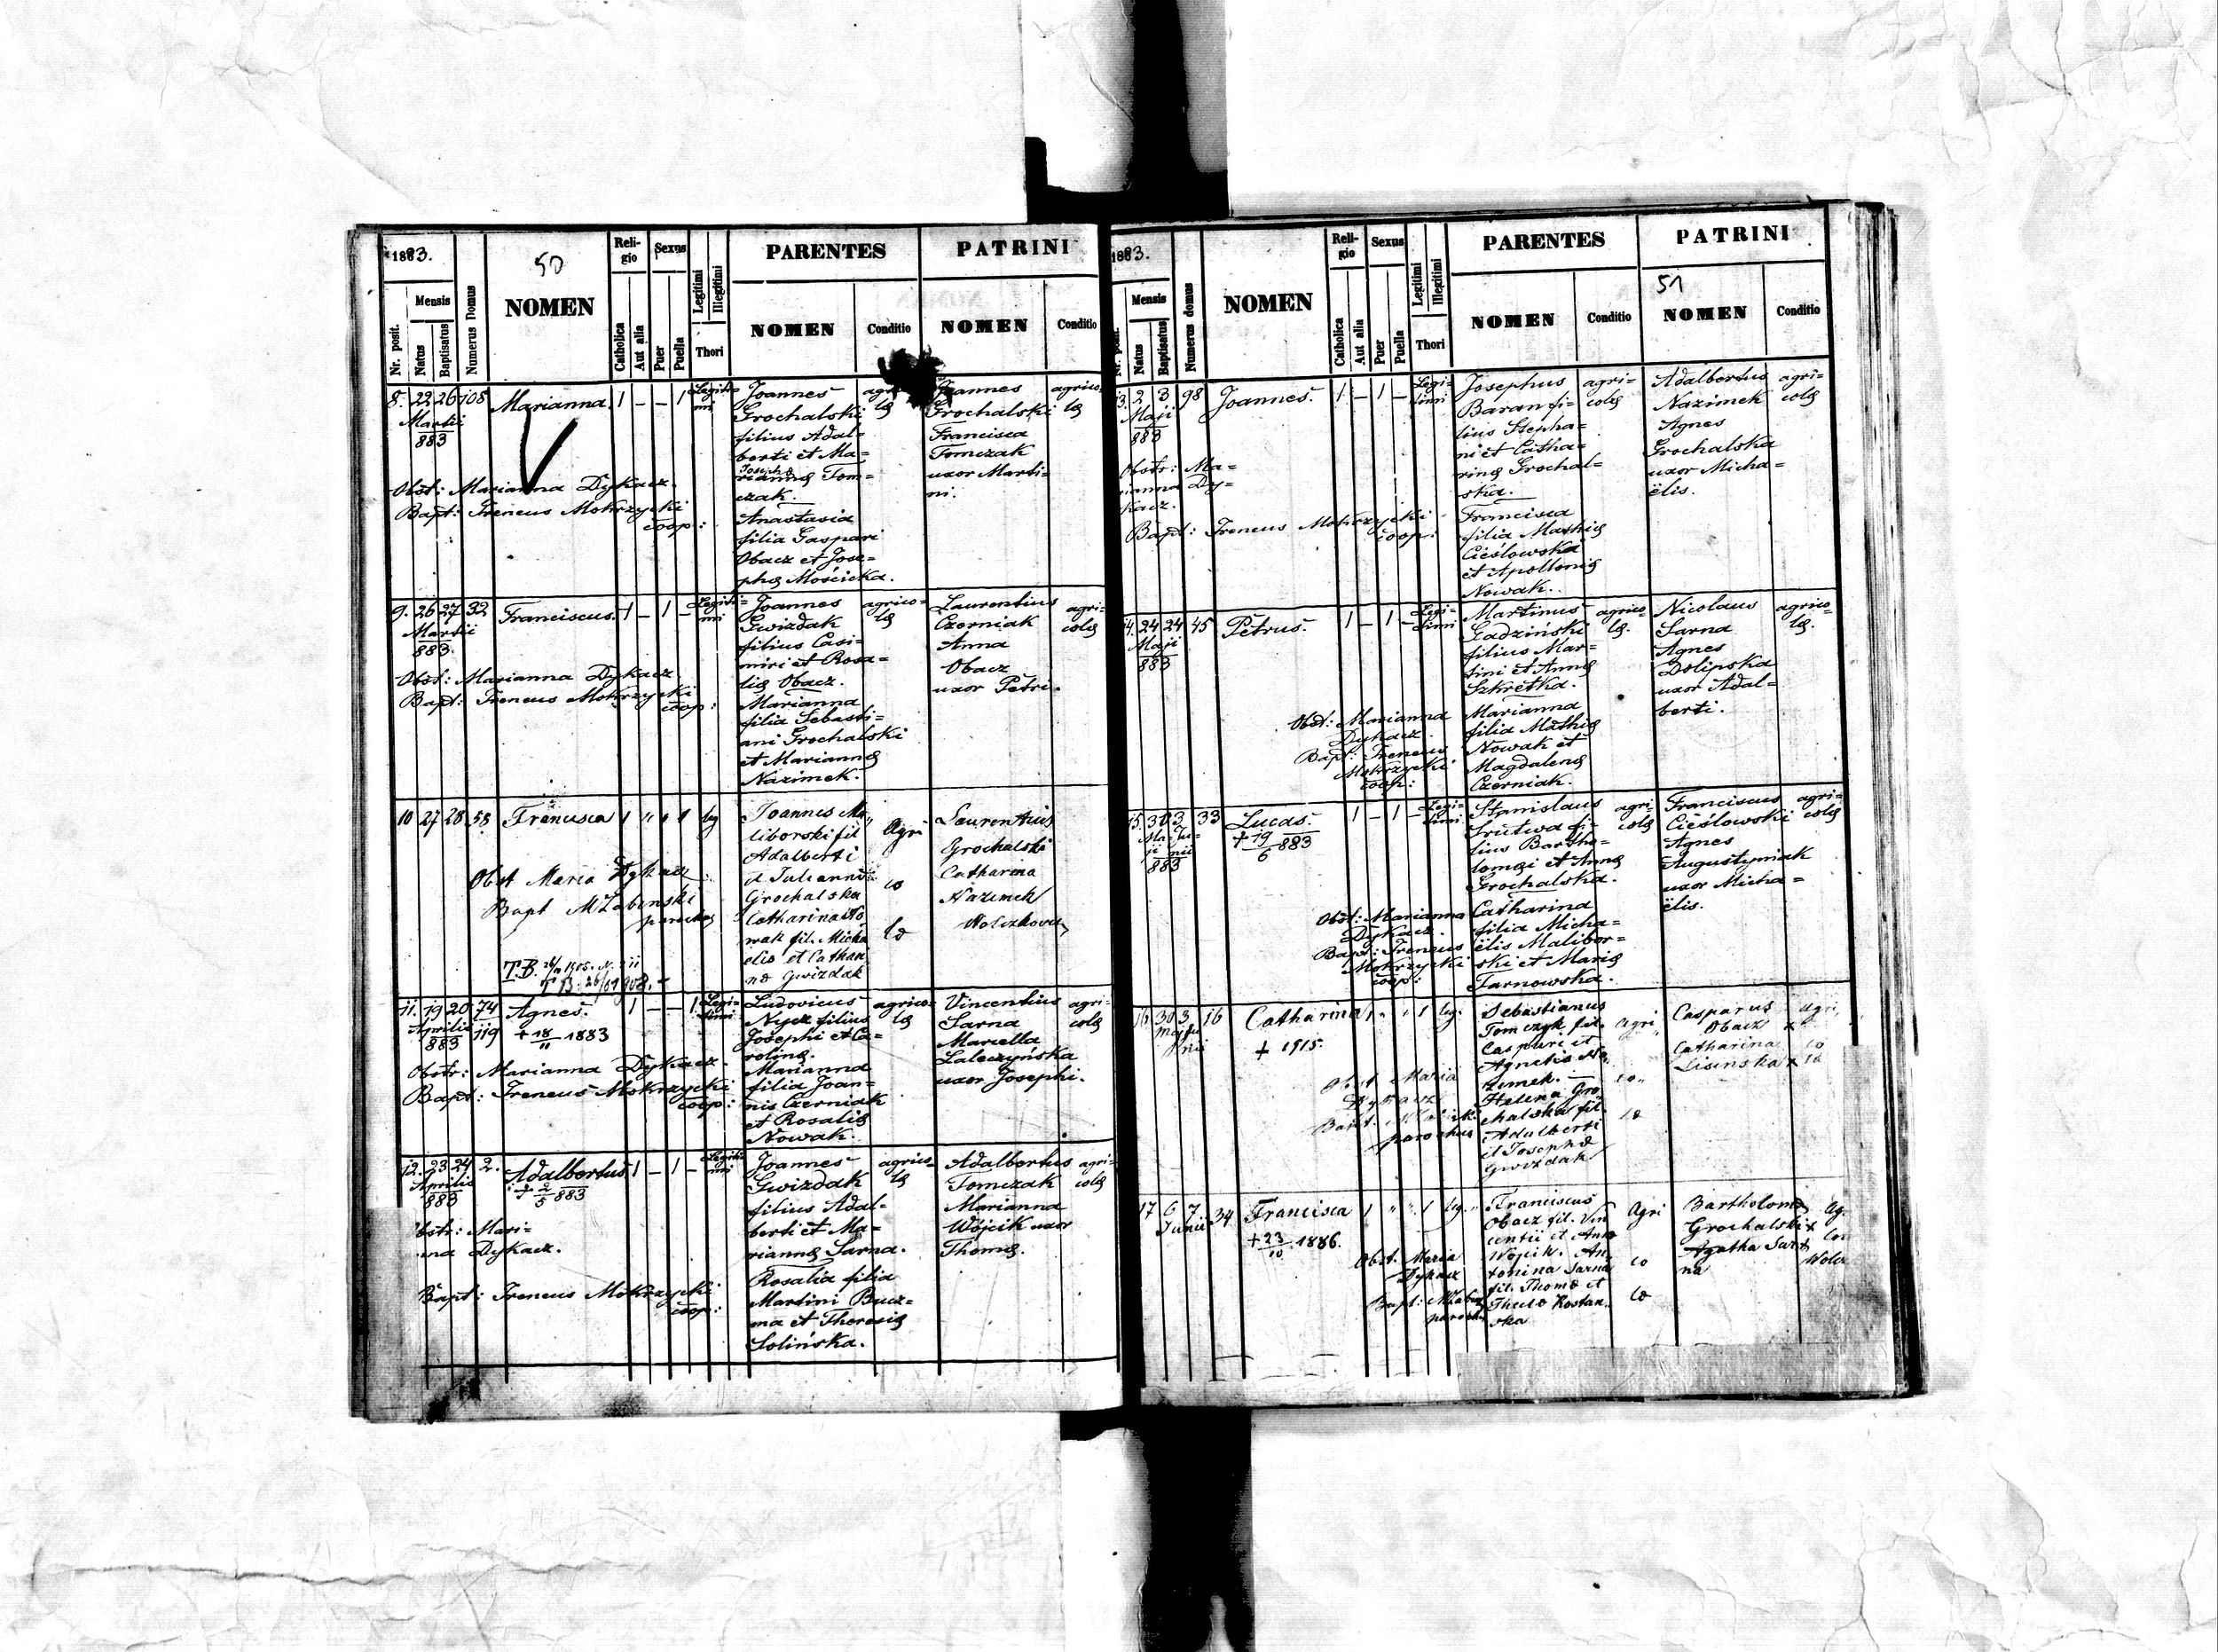 1883.
50
Nr. posit.
Mensis
Natus
Baptisatus
Numerus Domus
NOMEN
Reli-
gio
Catholica
Aut alia
Sexus
Puer
Puella
Legitimi
Illegitimi
Thori
PARENTES
NOMEN
Conditio
PATRINI
NOMEN
Conditio
8. 22 26 108 Marianna. 1 – – 1 Legiti=
mi
Martii
883
Obst: Marianna Dykacz.
Bapt: Ireneus Mokrzycki
coop:
Joannes
Grochalski
filius Adal=
berti et Ma=
Josepha
riannæ Tom=
czak.
Anastasia
filia Gaspari
Obacz et Jose=
phæ Mościcka.
Joannes
Grochalski
Francisca
Tomczak
uxor Marti=
ni.
agrico
læ
9. 26 27 32 Franciscus. 1 – 1 – Legiti=
mi
Martii
883.
Obst: Marianna Dykacz
Bapt: Ireneus Mokrzycki
coop:
Joannes
Gwizdak
filius Casi=
miri et Rosa=
liæ Obacz.
Marianna
filia Sebasti=
ani Grochalski
et Mariannæ
Nazimek.
agrico=
læ
Laurentius
Czerniak
Anna
Obacz
uxor Petri.
agri=
colæ
10 27 28 58 1 " " 1 leg
Obst Maria Dykacz
Bapt MZabinski
parochus
T.B.
Joannes Ma
liborski fil
Adalberti
et Juliannæ
Grochalska
Catharina No
wak fil. Micha
elis et Catha
næ Gwizdak
Agri
co
læ
Laurentius
Grochalski
Catharina
Nazimek
11. 19 20 74 Agnes. 1 – – 1 Legi=
timi
Aprilis
883 119 + 18/11 1883
Obstr: Marianna Dykacz.
Bapt: Ireneus Mokrzycki
coop:
Ludovicus
Nycz filius
Josephi et Ca=
rolinæ.
Marianna
filia Joan=
nis Czerniak
et Rosaliæ
Nowak.
agrico=
læ
Vincentius
Sarna
Marcella
Laleczyńska
uxor Josephi.
agri=
colæ
12. 23 24 2. Adalbertus 1 – 1 – Legiti
mi
Aprilis
883 + 2/5 883
Obstr: Mari=
nna Dykacz.
Bapt: Ireneus Mokrzycki
coop:
Joannes
Gwizdak
filius Adal=
berti et Ma=
riannæ Sarna.
Rosalia filia
Martini Bucz=
ma et Theresiæ
Solińska.
agrico=
læ
Adalbertus
Tomczak
Marianna
Wójcik uxor
Thomæ.
agri=
colæ
1883.
51
Nr. posit.
Mensis
Natus
Baptisatus
Numerus domus
NOMEN
Reli-
gio
Catholica
Aut alia
Sexus
Puer
Puella
Legitimi
Illegitimi
Thori
PARENTES
NOMEN
Conditio
PATRINI
NOMEN
Conditio
13. 2 3 98 Joannes. 1 – 1 – Legi=
timi
Maji
883
Obstr: Ma=
rianna Dy=
kacz.
Bapt: Ireneus Mokrzycki
coop:
Josephus
Baran fi=
lius Stepha=
ni et Catha=
rinæ Grochal=
ska.
Francisca
filia Mathiæ
Cieślowska
et Apolloniæ
Nowak.
agri=
colæ
Adalbertus
Nazimek
Agnes
Grochalska
uxor Micha=
ëlis.
agri=
colæ
14. 24 24 45 Petrus. 1 – 1 – Legi=
timi
Maji
883
Obst: Marianna
Dykacz.
Bapt: Ireneus
Mokrzycki
coop:
Martinus
Gadziński
filius Mar=
tini et Annæ
Szkretka.
Marianna
filia Mathiæ
Nowak et
Magdalenæ
Czerniak.
agrico=
læ.
Nicolaus
Sarna
Agnes
Dolipska
uxor Adal=
berti.
agrico=
læ.
15. 30 3 33 Lucas. 1 – 1 – Legi=
timi
Ma= Ju=
ji nii
883
+ 19/6 883
Obst: Marianna
Dykacz.
Bapt: Ireneus
Mokrzycki
coop:
Stanislaus
Srutwa fi=
lius Bartho=
lomæi et Annæ
Grochalska.
Catharina
filia Micha=
ëlis Malibor=
ski et Mariæ
Tarnowska.
agri=
colæ
Franciscus
Cieślowski
Agnes
Augustyniak
uxor Micha=
ëlis.
agri=
colæ
16 30 3 16 Catharina 1 " " 1 leg.
+ 1915.
Obst Maria
Dykacz
Bapt.
parochus
Sebastianus
Tomczyk fil.
Caspari et
Agnetis Na
zimek.
Helena Gro
chalska fil.
Adalberti
et Josephæ
Gwizdak
agri
co
læ
Casparus
Obacz
Catharina
Lisinska
agri
co
læ
17 6 7 34 Francisca 1 " " 1 leg.
Junii
+ 23/10 1886.
Obst. Maria
Dykacz
Bapt: MZabin
paroch
Franciscus
Obacz fil. Vin
centii et Annæ
Wójcik. An
tonina Sarna
fil. Thomæ et
Theclæ Kostan
ska
Agri
co
læ
Bartholomæ
Grochalski
Agatha Sar
na